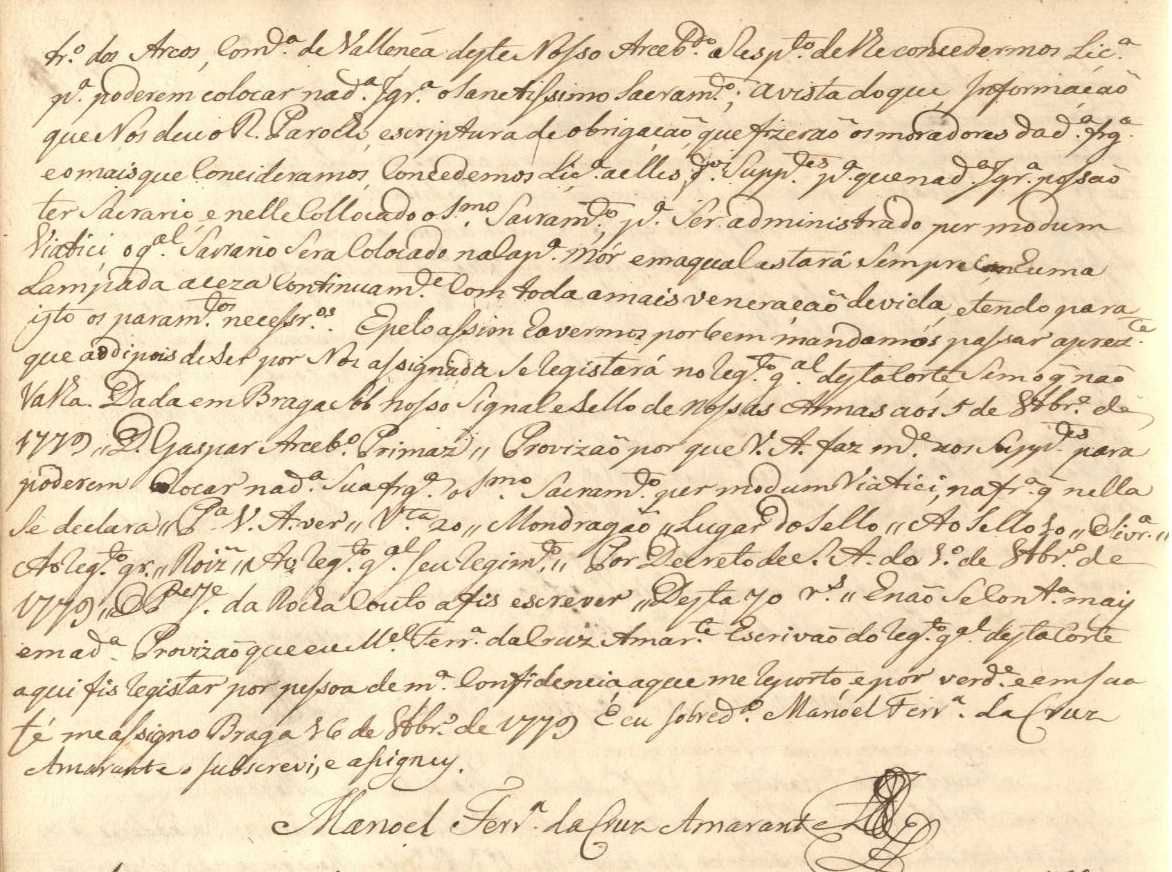 fr.º dos Arcos, Com.ª de Vallença deste Nosso Arceb.do a Resp.to de lhe concedermos Lic.ª
p.ª poderem colocar na d.ª Igr.ª o Sanctissimo Sacram.to; a vista do que, Informação
que Nos deu o R. Parocho, escriptura de obrigação que fizerão os moradores da d.ª frg.ª
e o mais que Concideramos, Concedemos Lic.ª a elles d.os Supp.es p.ª que na d.ª Igr.ª possão
ter Sacrario, e nelle Collocado o S.mo Sacram.to p.ª Ser administrado per modum
Viatici o q.al Sacrario Sera Colocado na Cap.ª mór e ma qual estará Sempre huma
Lampada aceza Continuam.te Com toda a mais veneração devida, e tendo para
isto os param.tos necessr.os. E pelo assim havermos por bem mandamos passar a prez.te
que ao dipois de Ser por Nos assignada Se Registará no Reg.to g.al desta Corte Sem o q̃ não
Valha. Dada em Braga Sob nosso Signal e Sello de Nossas Armas aos 5 de 8br.º de
1779 ,, D. Gaspar Arceb.º Primaz ,, Provizão por que V. A. faz m.ce aos Supp.es para
poderem Colocar na d.ª Sua frg.ª o S.mo Sacram.to per modum Viatici, na fr.ª q̃ nella
Se declara ,, P.ª V. A. ver ,, V.ta 20 ,, Mondragão ,, Lugar do Sello ,, Ao Sello 50 ,, Olivr.ª ,,
Ao Reg.to gr. ,, Roiz ,, Ao Reg.to g.al Seu Regim.to ,, Por Decreto de S. A. do 1.º de 8br.º de
1779 ,, da Rocha Couto a fis escrever ,, Desta 70 r.s ,, E não Se Cont.ª mais
em a d.ª Provizão que eu M.el Ferr.ª da Cruz Amar.te Escrivão do Reg.to g.al desta Corte
aqui fis Registar por pessoa de m.ª Confidencia a que me Reporto e por verd.e e em sua
fé me assigno Braga 16 de 8br.º de 1779 E eu sobred.º Manoel Ferr.ª da Cruz
Amarante o subscrevi, e assigney.
Manoel Ferr.ª da Cruz Amarante